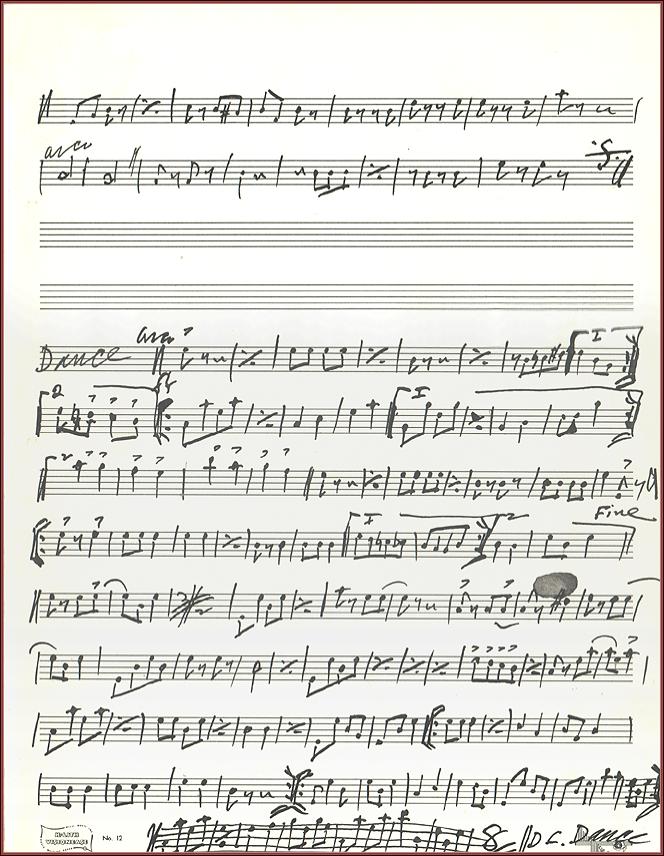 arco
Dance arco
I
2 ff I
2
Fine
I 2
No. 12 D.C. Dance